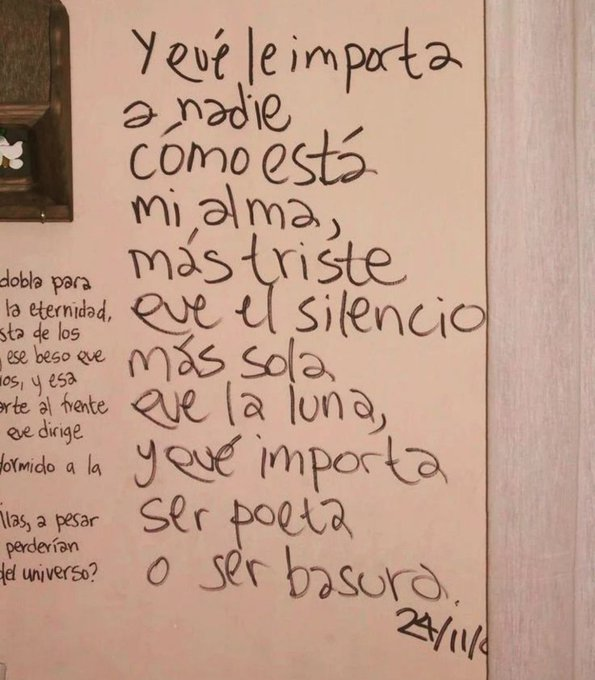 dobla para
la eternidad,
sta de los
ese beso que
ios, y esa
arte al frente
que dirige
dormido a la
llas, a pesar
perderían
del universo?
Y qué le importa
a nadie
cómo está
mi alma,
más triste
que el silencio
más sola
que la luna,
y qué importa
ser poeta
o ser basura.
24/11/